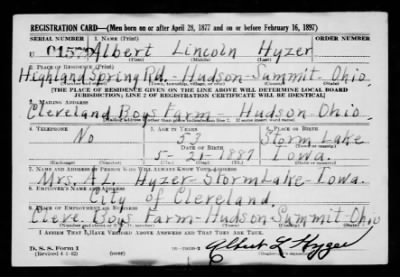 REGISTRATION CARD—(Men born on or after April 28, 1877 and on or before February 16, 1897)
SERIAL NUMBER 1. NAME (Print) ORDER NUMBER
U 01575 Albert Lincoln Hyzer
(First) (Middle) (Last)
2. PLACE OF RESIDENCE (Print)
Highland Spring Rd. - Hudson - Summit - Ohio.
[THE PLACE OF RESIDENCE GIVEN ON THE LINE ABOVE WILL DETERMINE LOCAL BOARD
JURISDICTION; LINE 2 OF REGISTRATION CERTIFICATE WILL BE IDENTICAL]
3. MAILING ADDRESS
Cleveland Boys Farm - Hudson Ohio.
4. TELEPHONE 5. AGE IN YEARS 6. PLACE OF BIRTH
No 53 Storm Lake
DATE OF BIRTH
5-21-1889 Iowa.
(Exchange) (Number) (Mo.) (Day) (Yr.)
7. NAME AND ADDRESS OF PERSON WHO WILL ALWAYS KNOW YOUR ADDRESS
Mrs. A. L. Hyzer - Storm Lake - Iowa.
8. EMPLOYER'S NAME AND ADDRESS
City of Cleveland.
9. PLACE OF EMPLOYMENT OR BUSINESS
Cleve. Boys Farm - Hudson Summit - Ohio
I AFFIRM THAT I HAVE VERIFIED ABOVE ANSWERS AND THAT THEY ARE TRUE.
D. S. S. Form 1
Albert L Hyzer